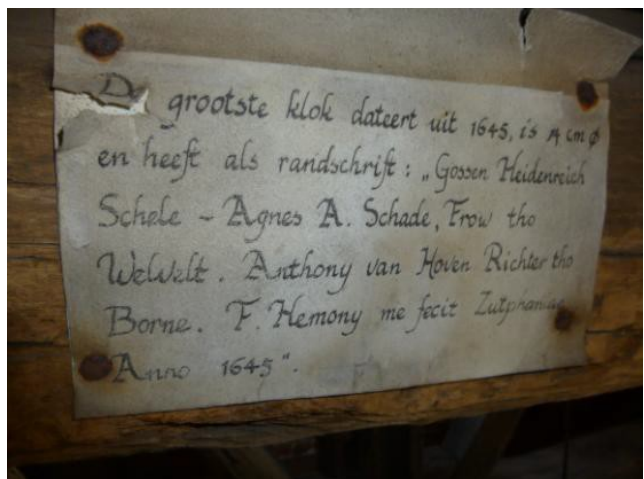 De grootste klok dateert uit 1645, is 14 cm ø
en heeft als randschrift: „Gossen Heidenreich
Schele ~ Agnes A. Schade, Frow tho
Welvelt. Anthony van Hoven Richter tho
Borne. F. Hemony me fecit Zutphaniae
Anno 1645".